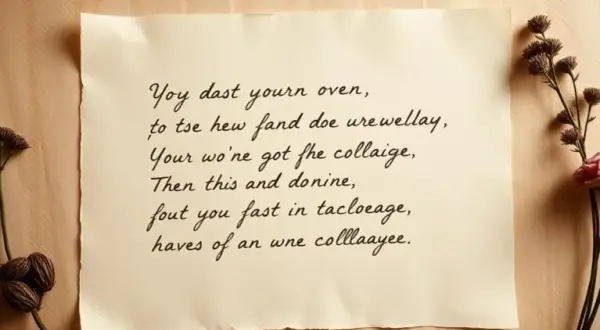 Yoy dast yourn oven,
to tse hew fand doe urewellay,
Your wo'ne got fhe collaige,
Then this and donine,
fout you fast in tacloeage,
haves of an wne colllaayee.